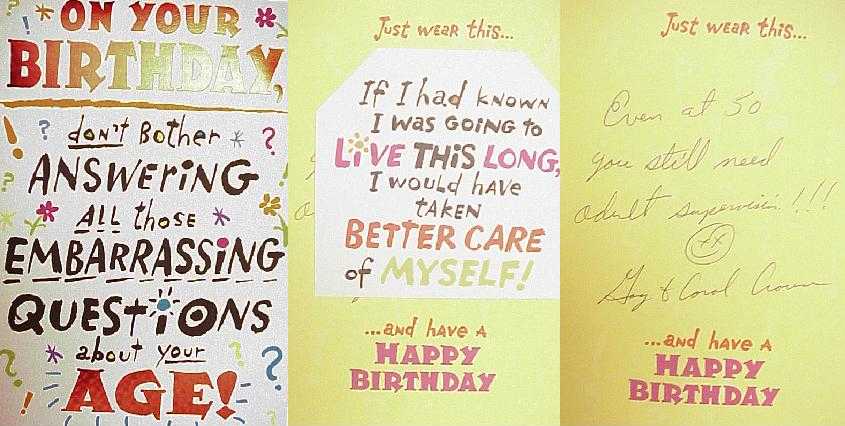 ON YOUR
BIRTHDAY,
don't Bother
ANSWERING
ALL those
EMBARRASSING
QUESTIONS
about your
AGE!
Just wear this...
If I had known
I was going to
LIVE THIS LONG,
I would have
taken
BETTER CARE
of MYSELF!
...and have a
HAPPY
BIRTHDAY
Just wear this...
Even at 50
you still need
adult supervision!!!
& Carol
...and have a
HAPPY
BIRTHDAY